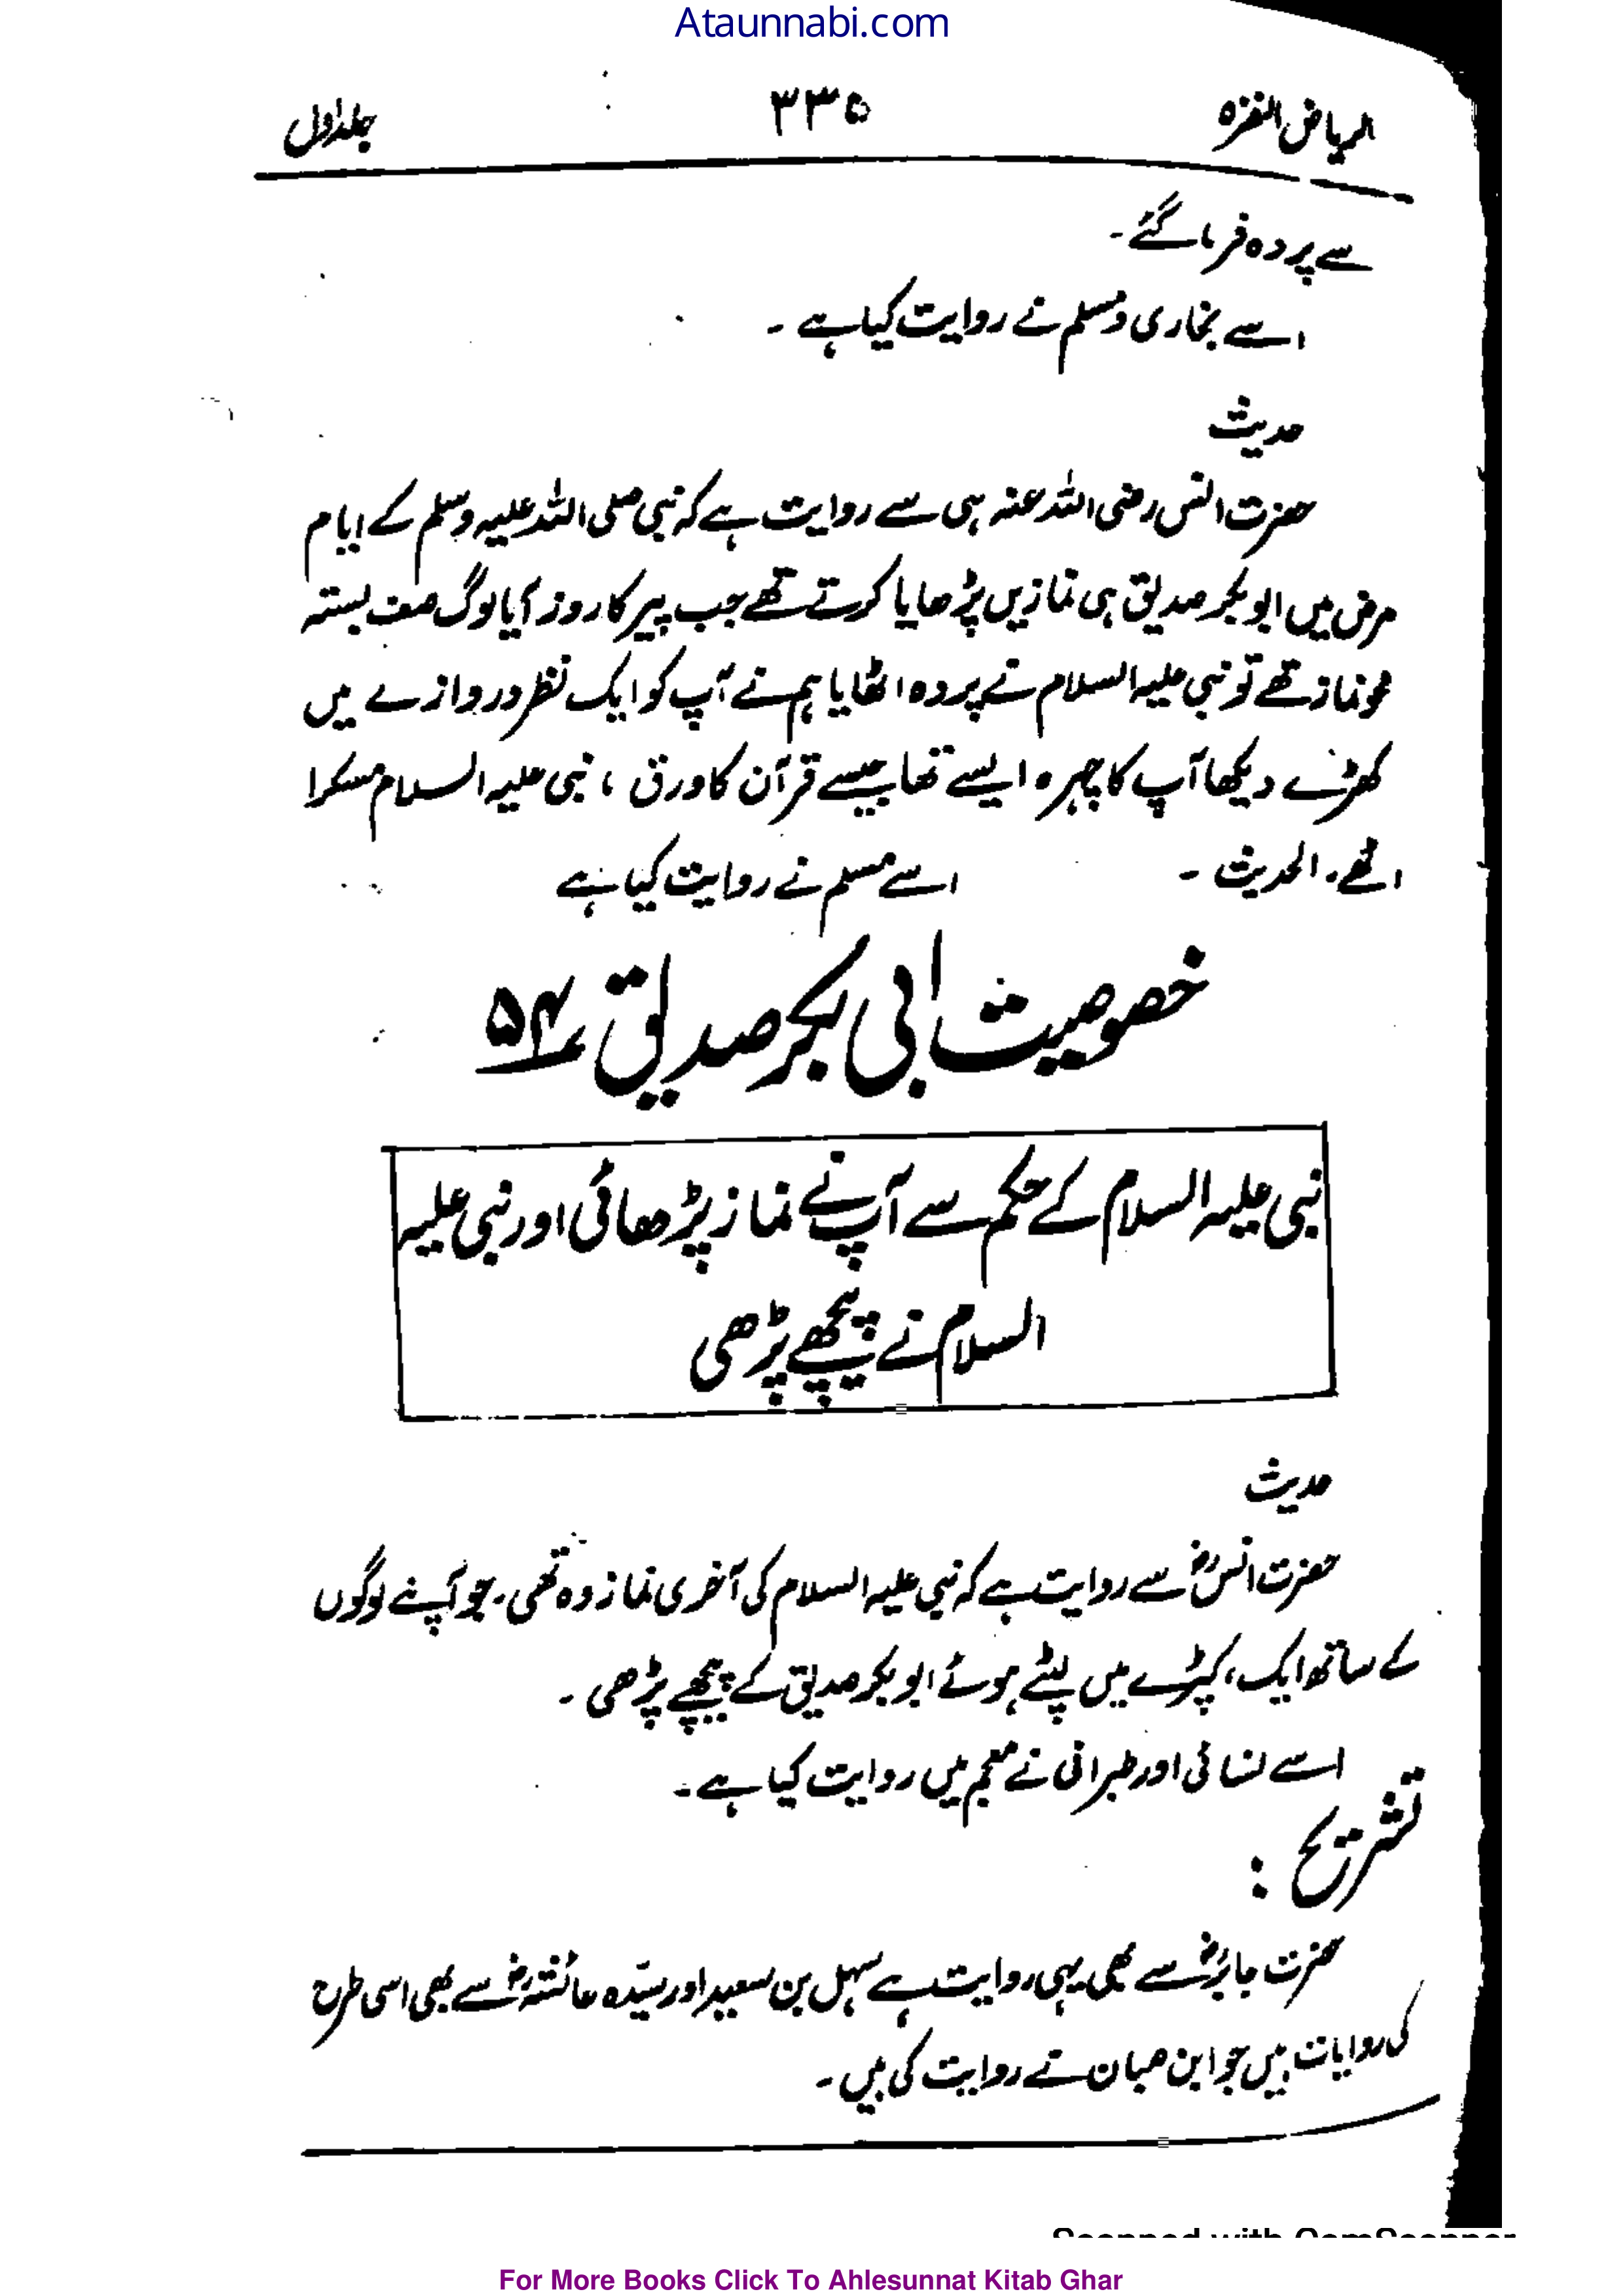 Ataunnabi.com
الریاض النضرہ ۳۳۵ جلد اول
سے پردہ فرما گئے ۔
اسے بخاری ومسلم نے روایت کیا ہے ۔
حدیث
حضرت انس رضی اللہ عنہ ہی سے روایت ہے کہ نبی صلی اللہ علیہ وسلم کے ایام
مرض میں ابو بکر صدیق ہی نمازیں پڑھایا کرتے تھے جب پیر کا روز آیا لوگ صف بستہ
محو نماز تھے تو نبی علیہ السلام نے پردہ اٹھایا ہم نے آپ کو ایک نظر دروازے میں
کھڑے دیکھا آپ کا چہرہ ایسے تھا جیسے قرآن کا ورق ، نبی علیہ السلام مسکرا
اٹھے ۔ الحدیث ۔ اسے مسلم نے روایت کیا ہے
خصوصیت ابی بکر صدیق ؍۵۴
نبی علیہ السلام کے حکم سے آپ نے نماز پڑھائی اور نبی علیہ
السلام نے پیچھے پڑھی
حدیث
حضرت انسؓ سے روایت ہے کہ نبی علیہ السلام کی آخری نماز وہ تھی ۔ جو آپنے لوگوں
کے ساتھ ایک ، کپڑے میں لپٹے ہوئے ابو بکر صدیق کے پیچھے پڑھی ۔
اسے نسائی اور طبرانی نے معجم میں روایت کیا ہے ۔
تشریح :
حضرت جابرؓ سے بھی یہی روایت ہے سہل بن سعید اور سیّدہ عائشہؓ سے بھی اسی طرح
کی روایات ہیں جو ابن حبان نے روایت کی ہیں ۔
Scanned with CamScanner
For More Books Click To Ahlesunnat Kitab Ghar